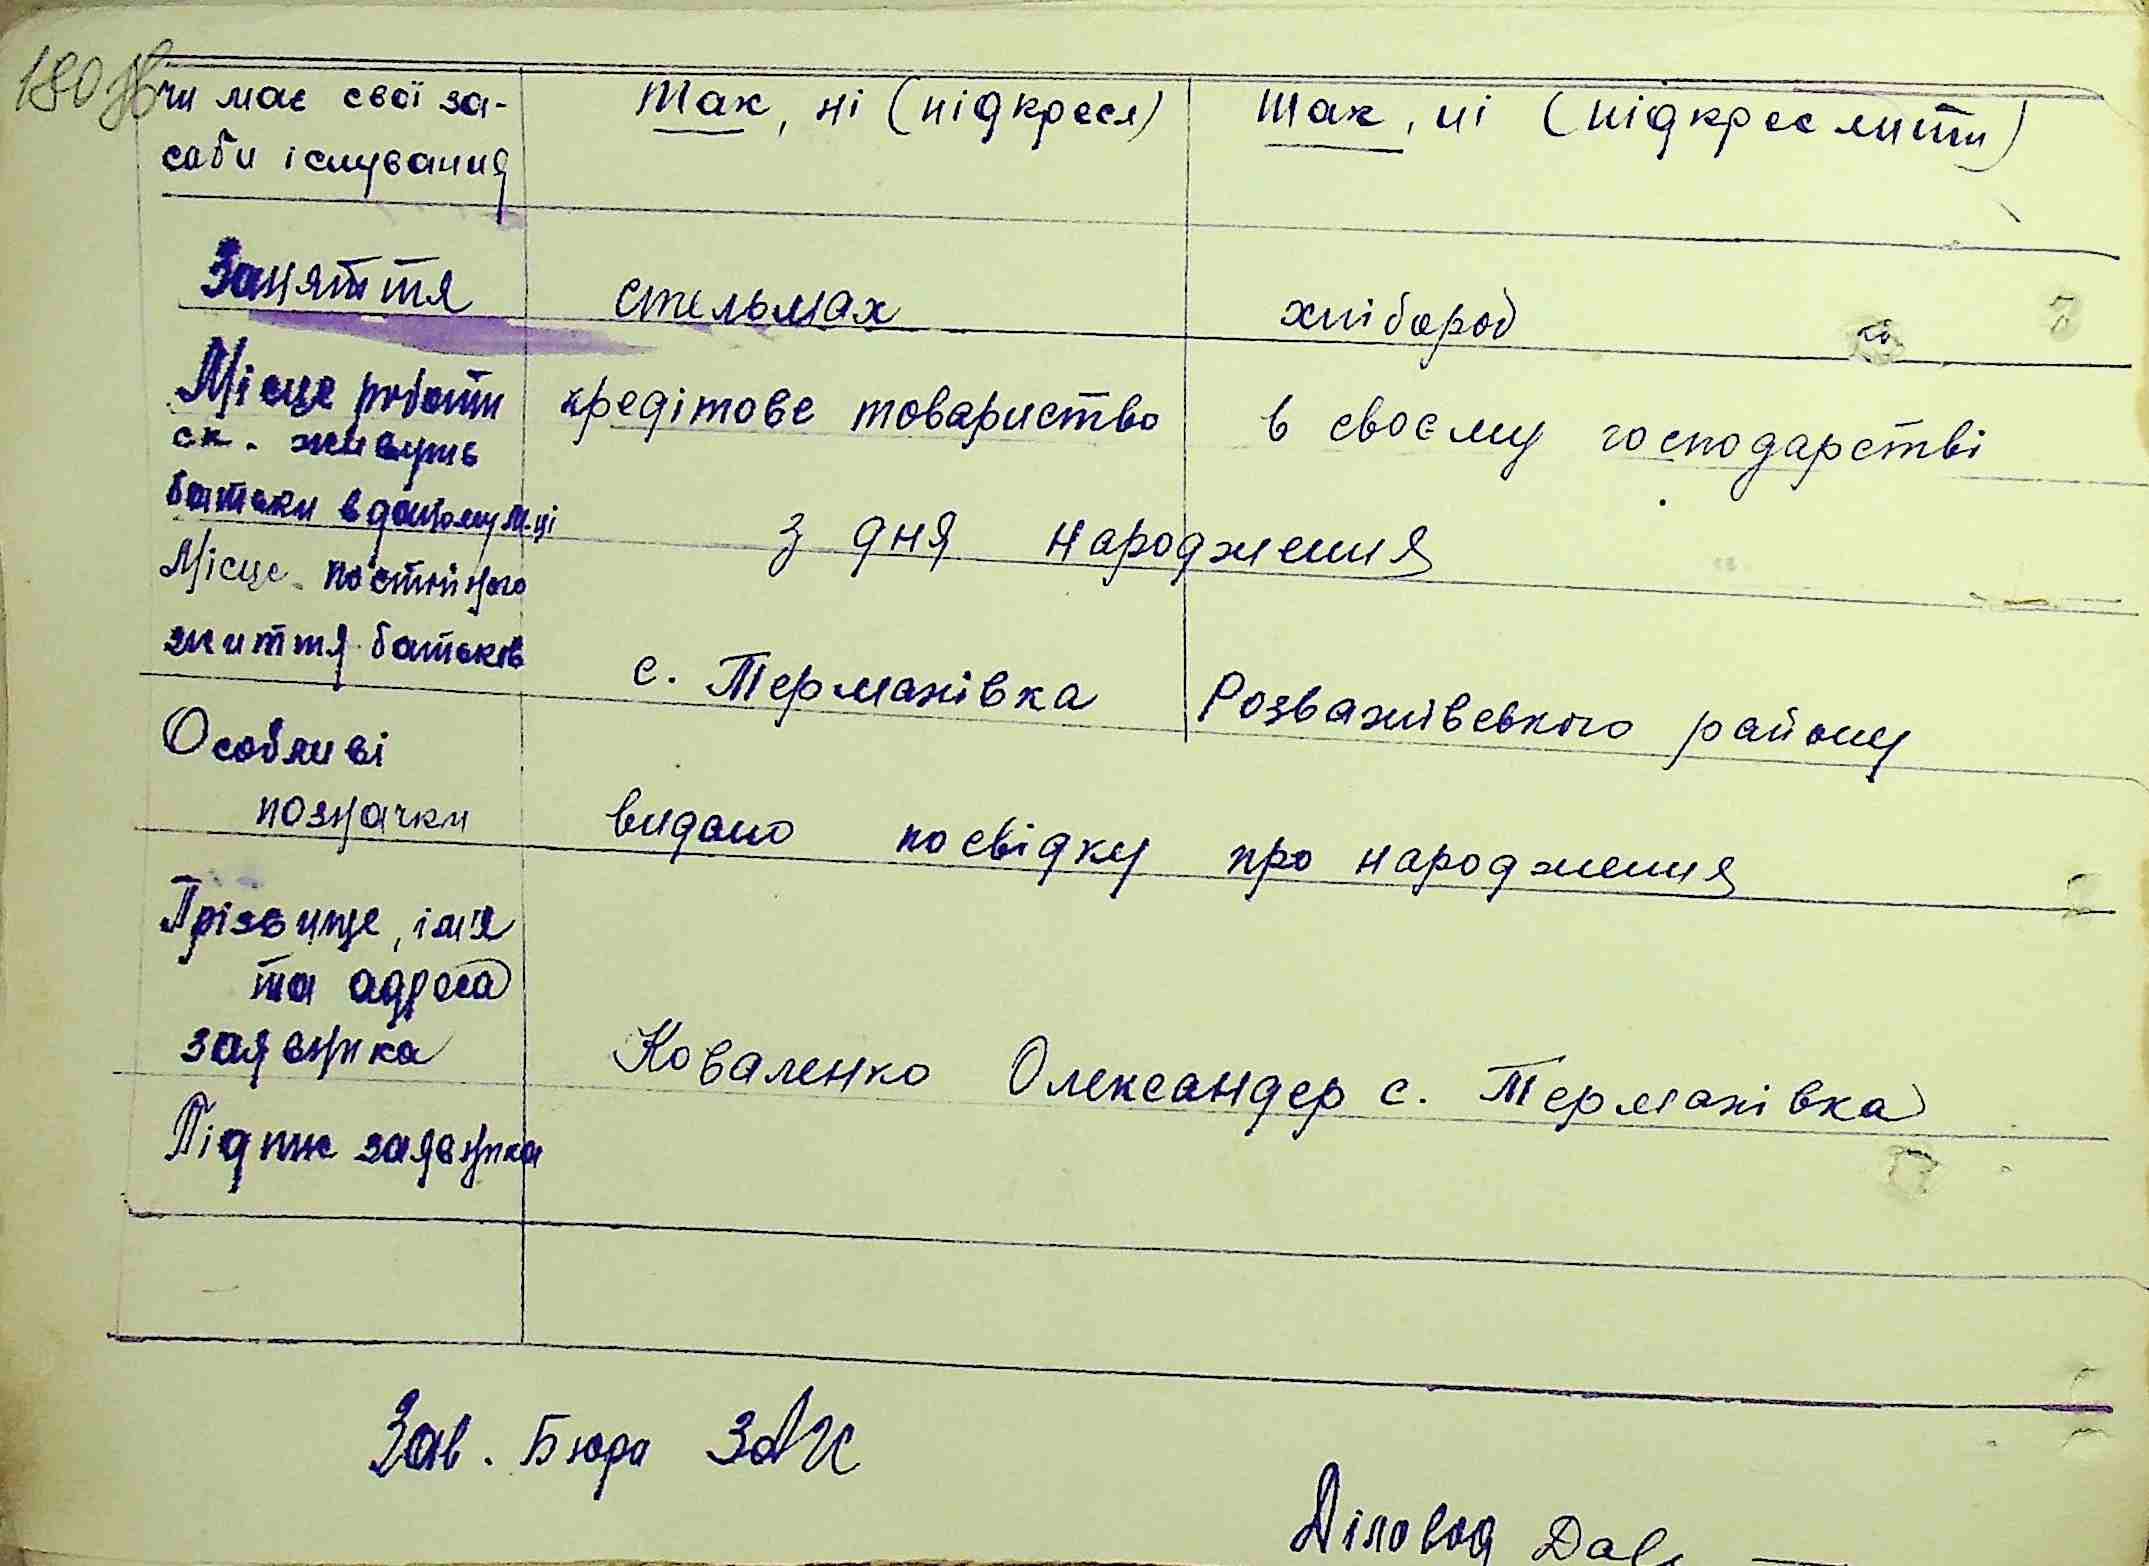 180
чи має свої за- так, ні (підкресл) так, ні (підкреслити)
соби існування
Заняття стельмах хлібороб
Місце роботи кредітове товариство в своєму господарстві
ск. живуть
батьки в даному м-ці з дня народження
Місце постійного
життя батьків с. Термахівка Розважівського району
Особливі
позначки видано посвідку про народження
Прізвище, ім'я
та адреса
заявника Коваленко Олександер с. Термахівка
Підпис заявника
Зав. Бюра ЗАГС
Діловод